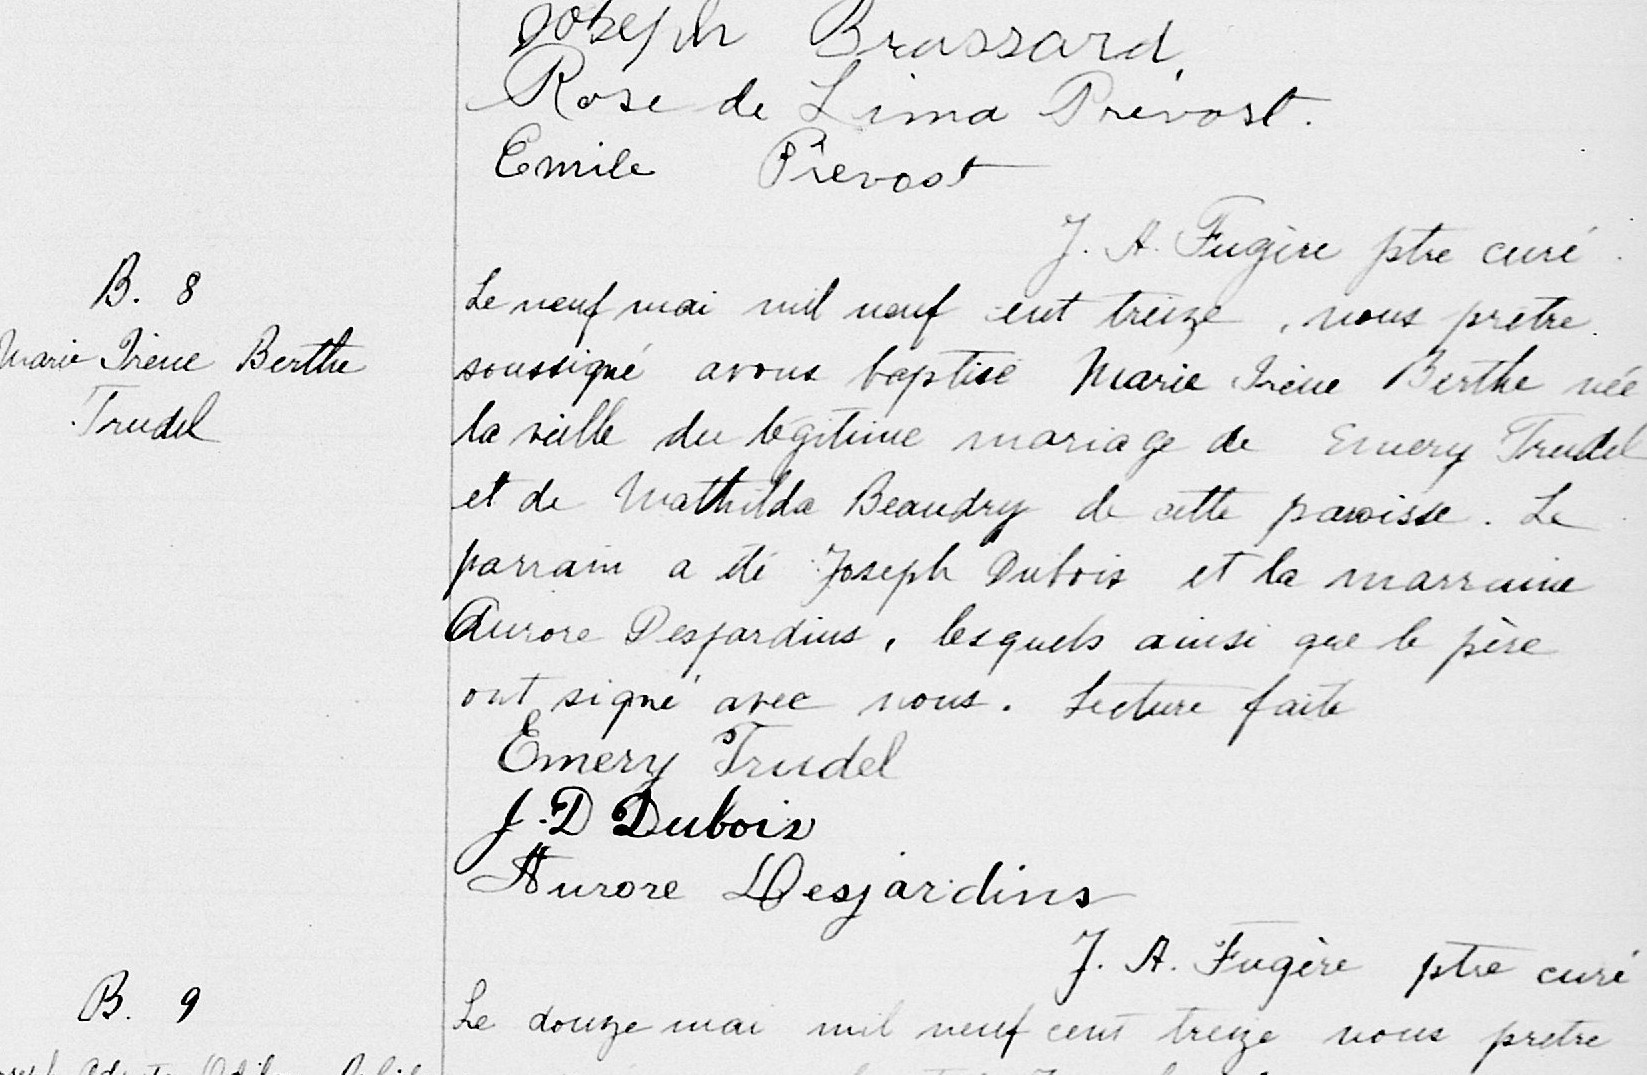 Joseph Brassard.
Rose de Lima Prévost.
Emile Prévost
J. A. Fugère ptre curé.
B. 8
Marie Irène Berthe
Trudel
Le neuf mai mil neuf cent treize, nous prêtre
soussigné avons baptisé Marie Irène Berthe née
la veille du légitime mariage de Emery Trudel
et de Mathilda Beaudry de cette paroisse. Le
parrain a été Joseph Dubois et la marraine
Aurore Desjardins, lesquels ainsi que le père
ont signé avec nous. Lecture faite
Emery Trudel
J. D Dubois
Aurore Desjardins
J. A. Fugère ptre curé
B. 9
Le douze mai mil neuf cent treize nous prêtre